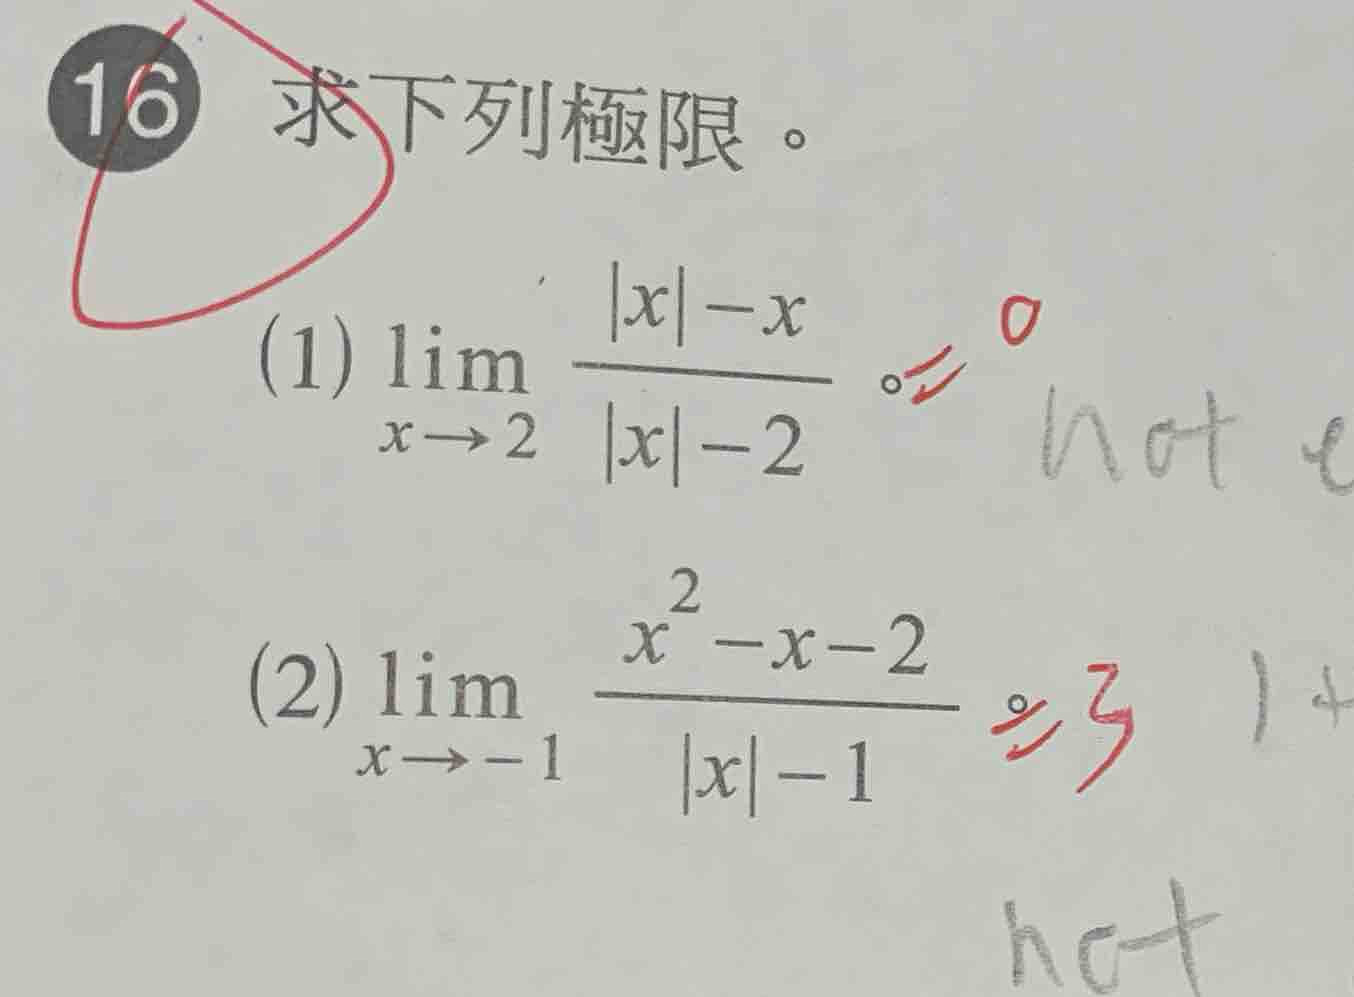 16 求下列極限。
(1) lim x→2 (|x|−x)/(|x|−2)。= 0
not e
(2) lim x→−1 (x²−x−2)/(|x|−1)。= 3
1+
not